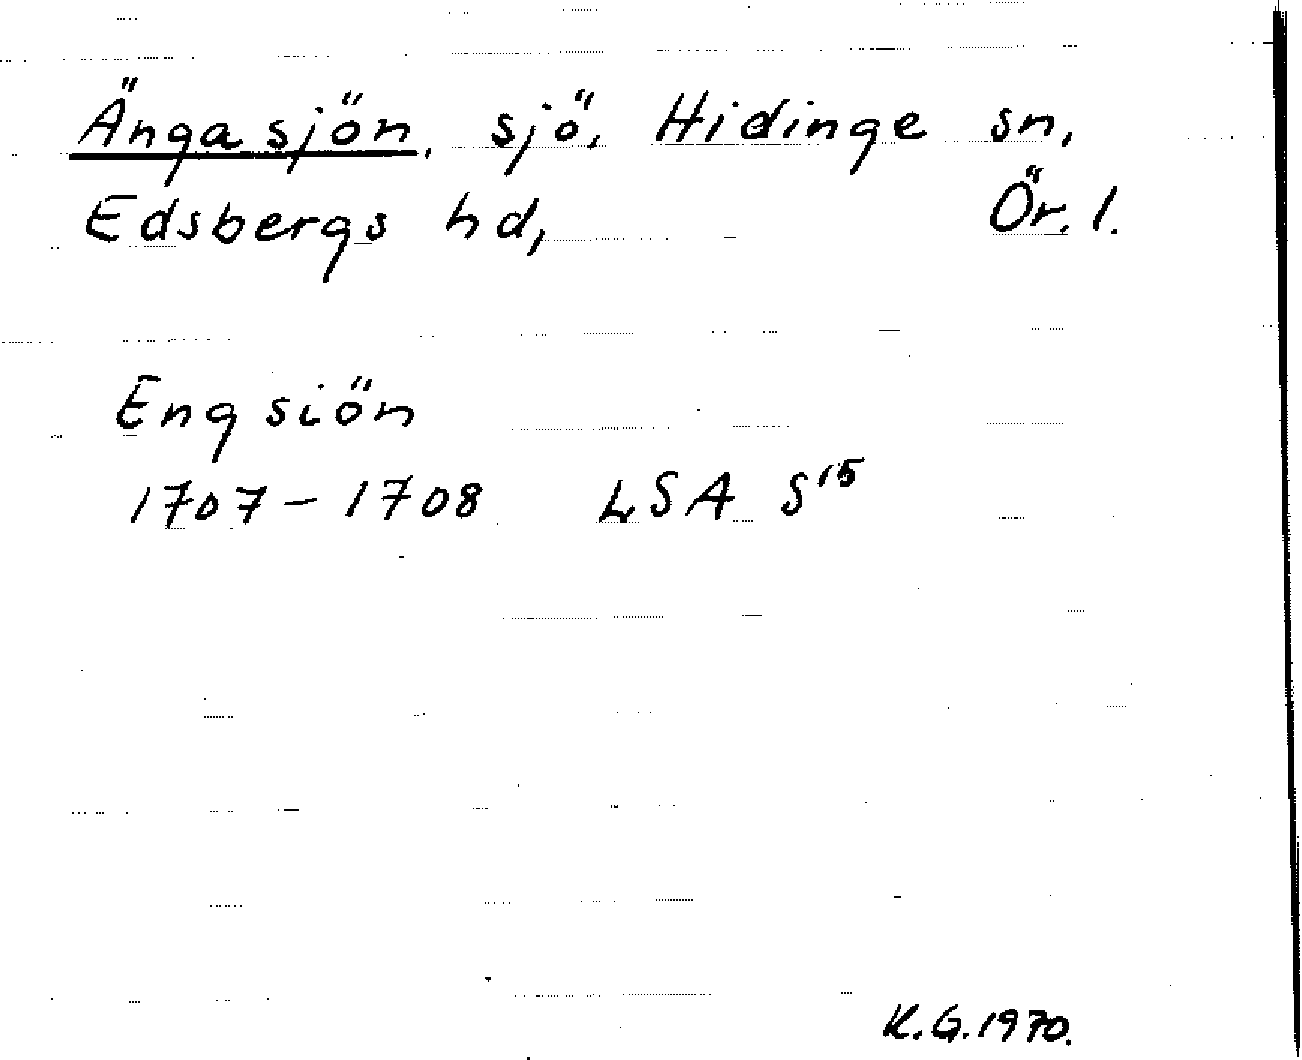 Ängasjön, sjö, Hidinge sn,
Edsbergs hd, Ör. l.
Engsiön
1707-1708 LSA S15
K.G. 1970.